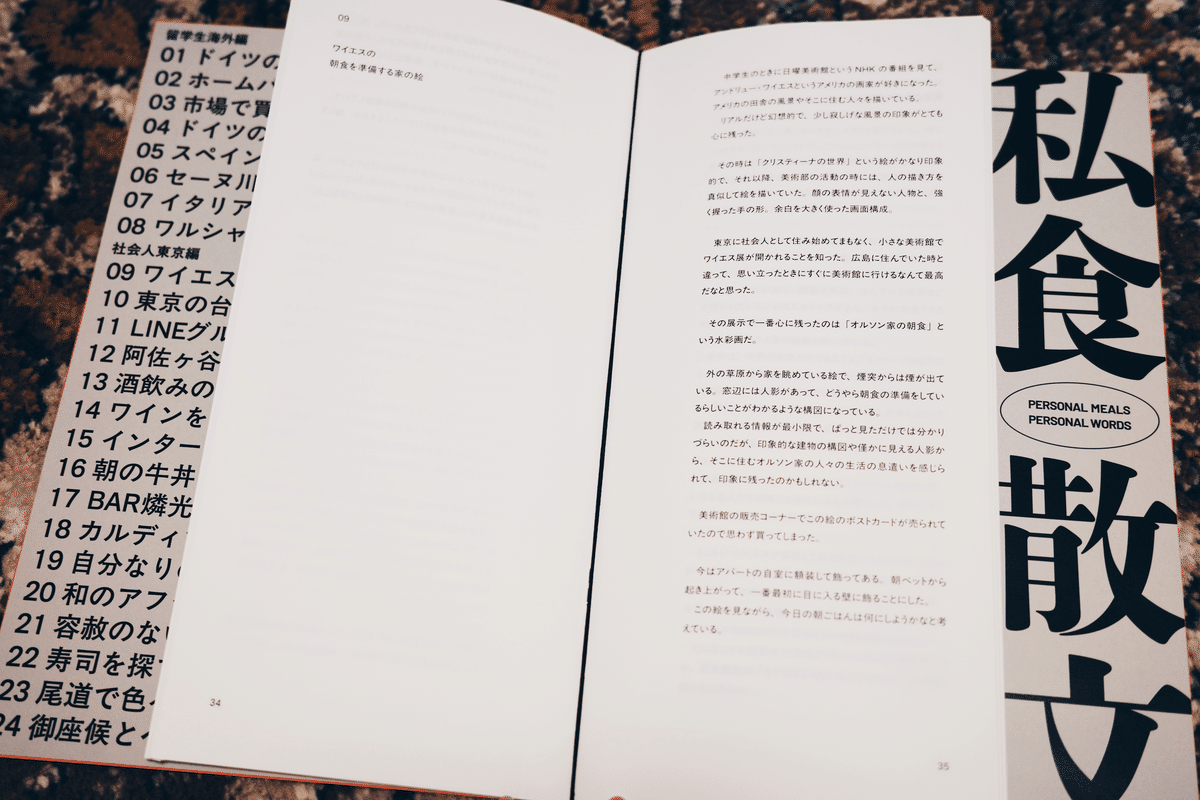 留学生海外編
01 ドイツの
02 ホームパ
03 市場で買
04 ドイツの
05 スペイン
06 セーヌ川
07 イタリア
08 ワルシャ
社会人東京編
09 ワイエス
10 東京の台
11 LINEグル
12 阿佐ヶ谷
13 酒飲みの
14 ワインを
15 インター
16 朝の牛丼
17 BAR燐光
18 カルディ
19 自分なり
20 和のアフ
21 容赦のな
22 寿司を探
23 尾道で色
24 御座候と
09
ワイエスの
朝食を準備する家の絵
34
中学生のときに日曜美術館という NHK の番組を見て、
アンドリュー・ワイエスというアメリカの画家が好きになった。
アメリカの田舎の風景やそこに住む人々を描いている。
リアルだけど幻想的で、少し寂しげな風景の印象がとても
心に残った。
その時は「クリスティーナの世界」という絵がかなり印象
的で、それ以降、美術部の活動の時には、人の描き方を
真似して絵を描いていた。顔の表情が見えない人物と、強
く握った手の形。余白を大きく使った画面構成。
東京に社会人として住み始めてまもなく、小さな美術館で
ワイエス展が開かれることを知った。広島に住んでいた時と
違って、思い立ったときにすぐに美術館に行けるなんて最高
だなと思った。
その展示で一番心に残ったのは「オルソン家の朝食」と
いう水彩画だ。
外の草原から家を眺めている絵で、煙突からは煙が出て
いる。窓辺には人影があって、どうやら朝食の準備をしてい
るらしいことがわかるような構図になっている。
読み取れる情報が最小限で、ぱっと見ただけでは分かり
づらいのだが、印象的な建物の構図や僅かに見える人影か
ら、そこに住むオルソン家の人々の生活の息遣いを感じら
れて、印象に残ったのかもしれない。
美術館の販売コーナーでこの絵のポストカードが売られて
いたので思わず買ってしまった。
今はアパートの自室に額装して飾ってある。朝ベットから
起き上がって、一番最初に目に入る壁に飾ることにした。
この絵を見ながら、今日の朝ごはんは何にしようかなと考
えている。
35
私
食
PERSONAL MEALS
PERSONAL WORDS
散
文